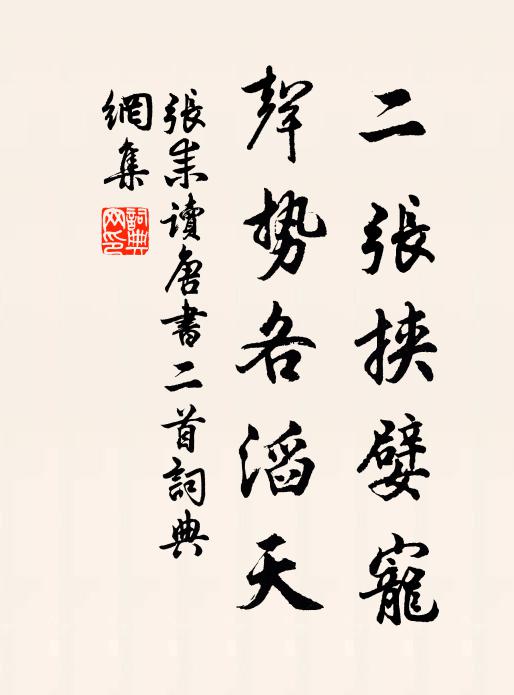 二張挾嬖寵
聲勢各滔天
張耒讀唐書二首詞典
網集
詞典網印